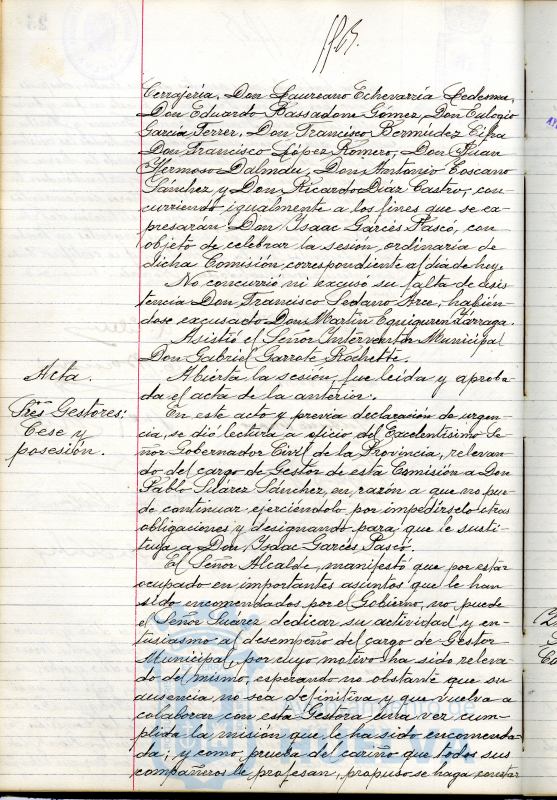 Cerrajería, Don Laureano Echevarría Ledesma,
Don Eduardo Bassadone Gómez, Don Eulogio
García Ferrer, Don Francisco Bermúdez
Don Francisco López Romero, Don Juan
Hermoso Dalmau, Don Antonio Toscano
Sánchez y Don Ricardo Díaz Castro, con-
curriendo igualmente a los fines que se ex-
presarán Don Isaac Garcés Pascó, con
objeto de celebrar la sesión ordinaria de
dicha Comisión, correspondiente al día de hoy.
No concurrió ni excuso su falta de asis
tencia Don Francisco Sedano Arce; habién-
dose excusado Don Martín Eguiguren Zárraga.
Asistió el Señor Interventor Municipal
Don Gabriel Garrote Rochette.
Acta.
Abierta la sesión, fue leída y aproba-
da el acta de la anterior.
Tres Gestores;
Cese y
posesión.
En este acto y previa declaración de urgen-
cia, se dió lectura a oficio del Excelentísimo Se-
ñor Gobernador Civil de la Provincia, relevan-
do del cargo de Gestor de esta Comisión a Don
Pablo Suárez Sánchez, en razón a que no pue-
de continuar ejerciéndolo por impedírselo otras
obligaciones y designando para que le susti-
tuya a Don Isaac Garcés Pascó.
El Señor Alcalde, manifestó que por estar
ocupado en importantes asuntos que le han
sido encomendados por el Gobierno, no puede
el Señor Suárez dedicar su actividad y en-
tusiasmo al desempeño del cargo de Gestor
Municipal, por cuyo motivo ha sido releva-
do del mismo, esperando no obstante que su
ausencia no sea definitiva y que vuelva a
colaborar con esta Gestora una vez cum-
plida la misión que le ha sido encomenda-
da; y como prueba del cariño que todos sus
compañeros le profesan, propuso se haga constar
Ayuntamiento de
HUELVA